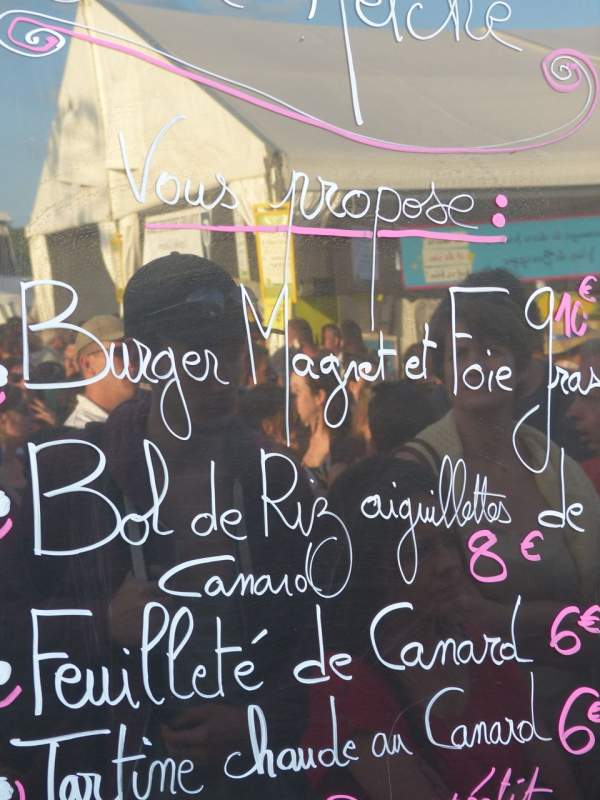 Vous propose :
Burger Magret et Foie gras 10€
Bol de Riz aiguillettes de
Canard 8€
Feuilleté de Canard 6€
Tartine chaude au Canard 6€